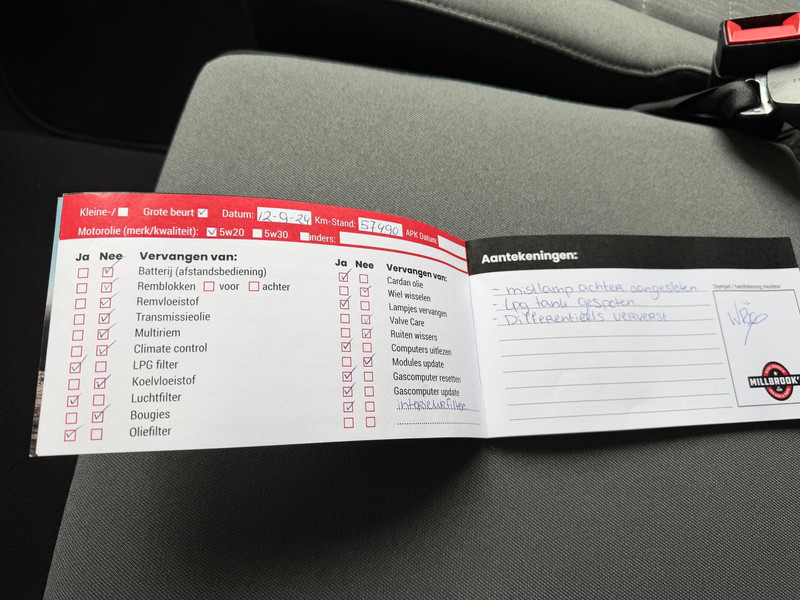 Kleine-/ Grote beurt Datum: 12-9-24 Km-Stand: 57490 APK Datum:
Motorolie (merk/kwaliteit): 5w20 5w30 anders:
Ja Nee Vervangen van:
Batterij (afstandsbediening)
Remblokken voor achter
Remvloeistof
Transmissieolie
Multiriem
Climate control
LPG filter
Koelvloeistof
Luchtfilter
Bougies
Oliefilter
Ja Nee Vervangen van:
Cardan olie
Wiel wisselen
Lampjes vervangen
Valve Care
Ruiten wissers
Computers uitlezen
Modules update
Gascomputer resetten
Gascomputer update
interieurfilter
Aantekeningen:
- mistlamp achter aangesloten
- Lpg tank gespoten
- Differentieels ververst
Stempel / handtekening monteur
MILLBROOK'